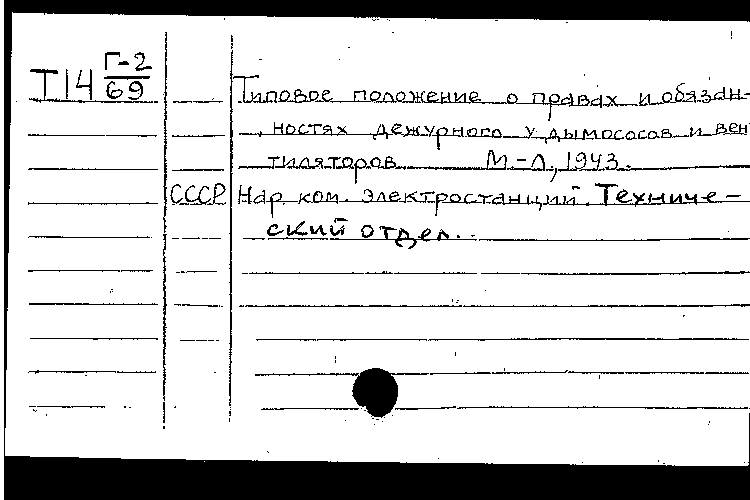 Г-2
Т14 69
Типовое положение о правах и обязан-
ностях дежурного у дымососов и вен
тиляторов М.-Л., 1943.
СССР Нар. ком. электростанций. Техниче-
ский отдел.